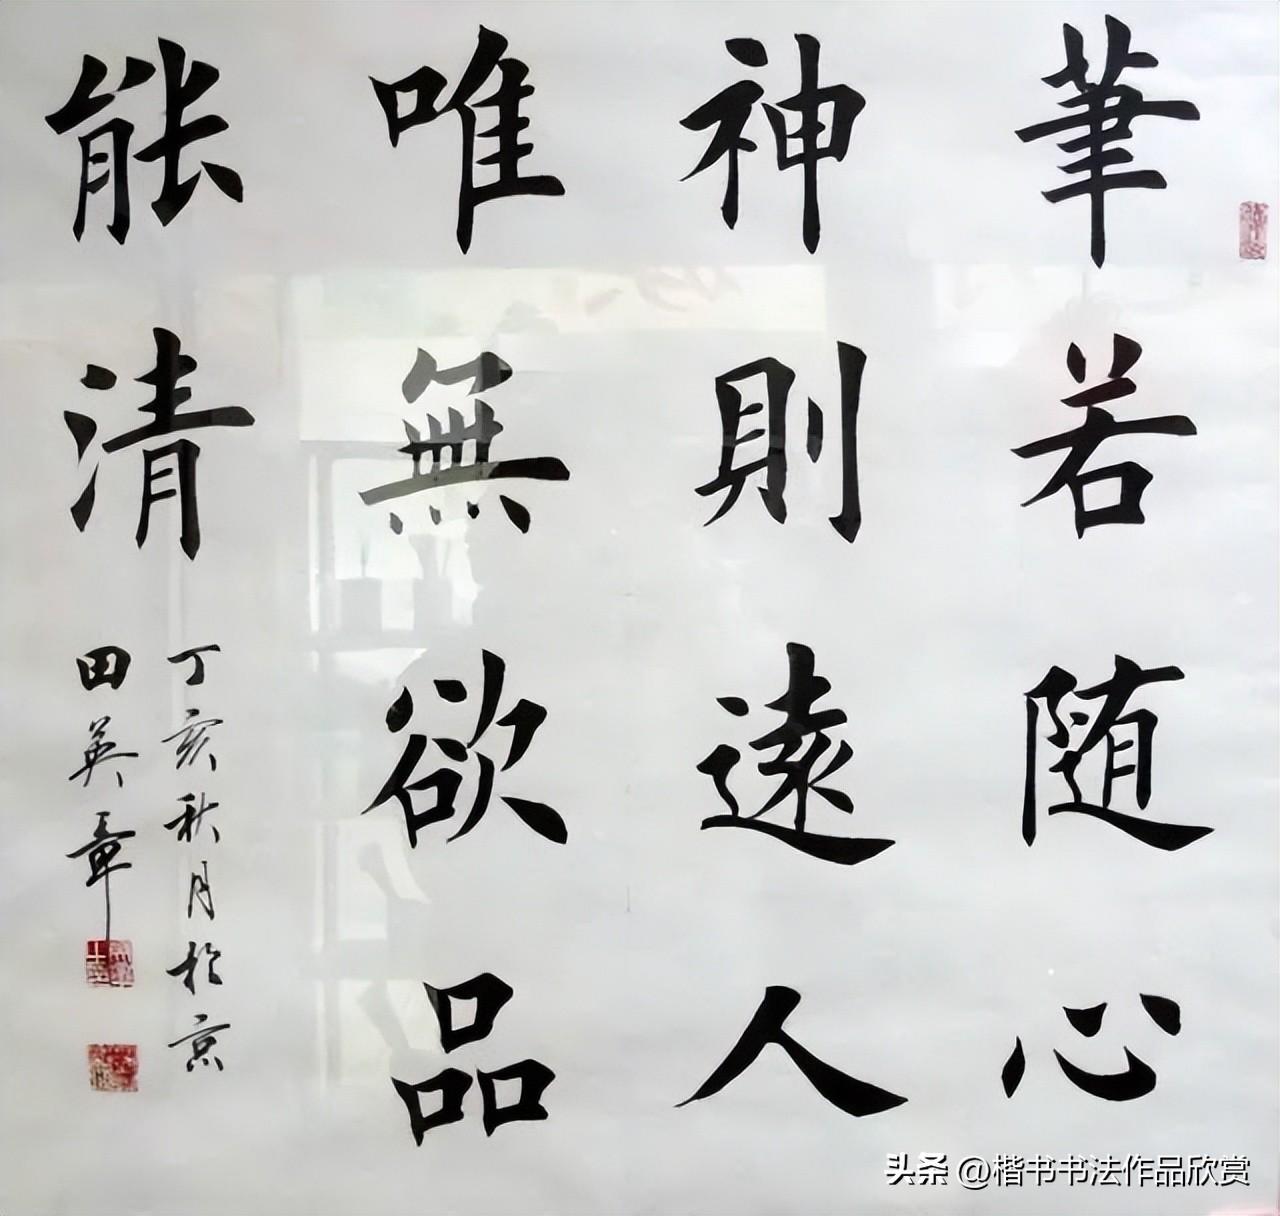 筆若随心
神則遠人
唯無欲品
能清
丁亥秋月於京
田英章
头条 @楷书书法作品欣赏